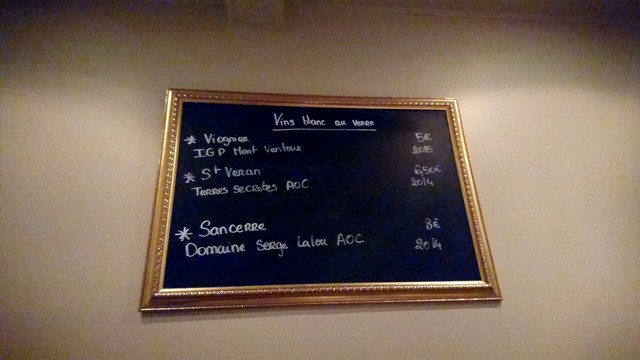 Vins blanc au verre
* Viognier 5€
IGP Mont Ventoux 2015
* St Veran 6,50€
Terres secretes AOC 2014
* Sancerre 8€
Domaine Serge Lalou AOC 2014